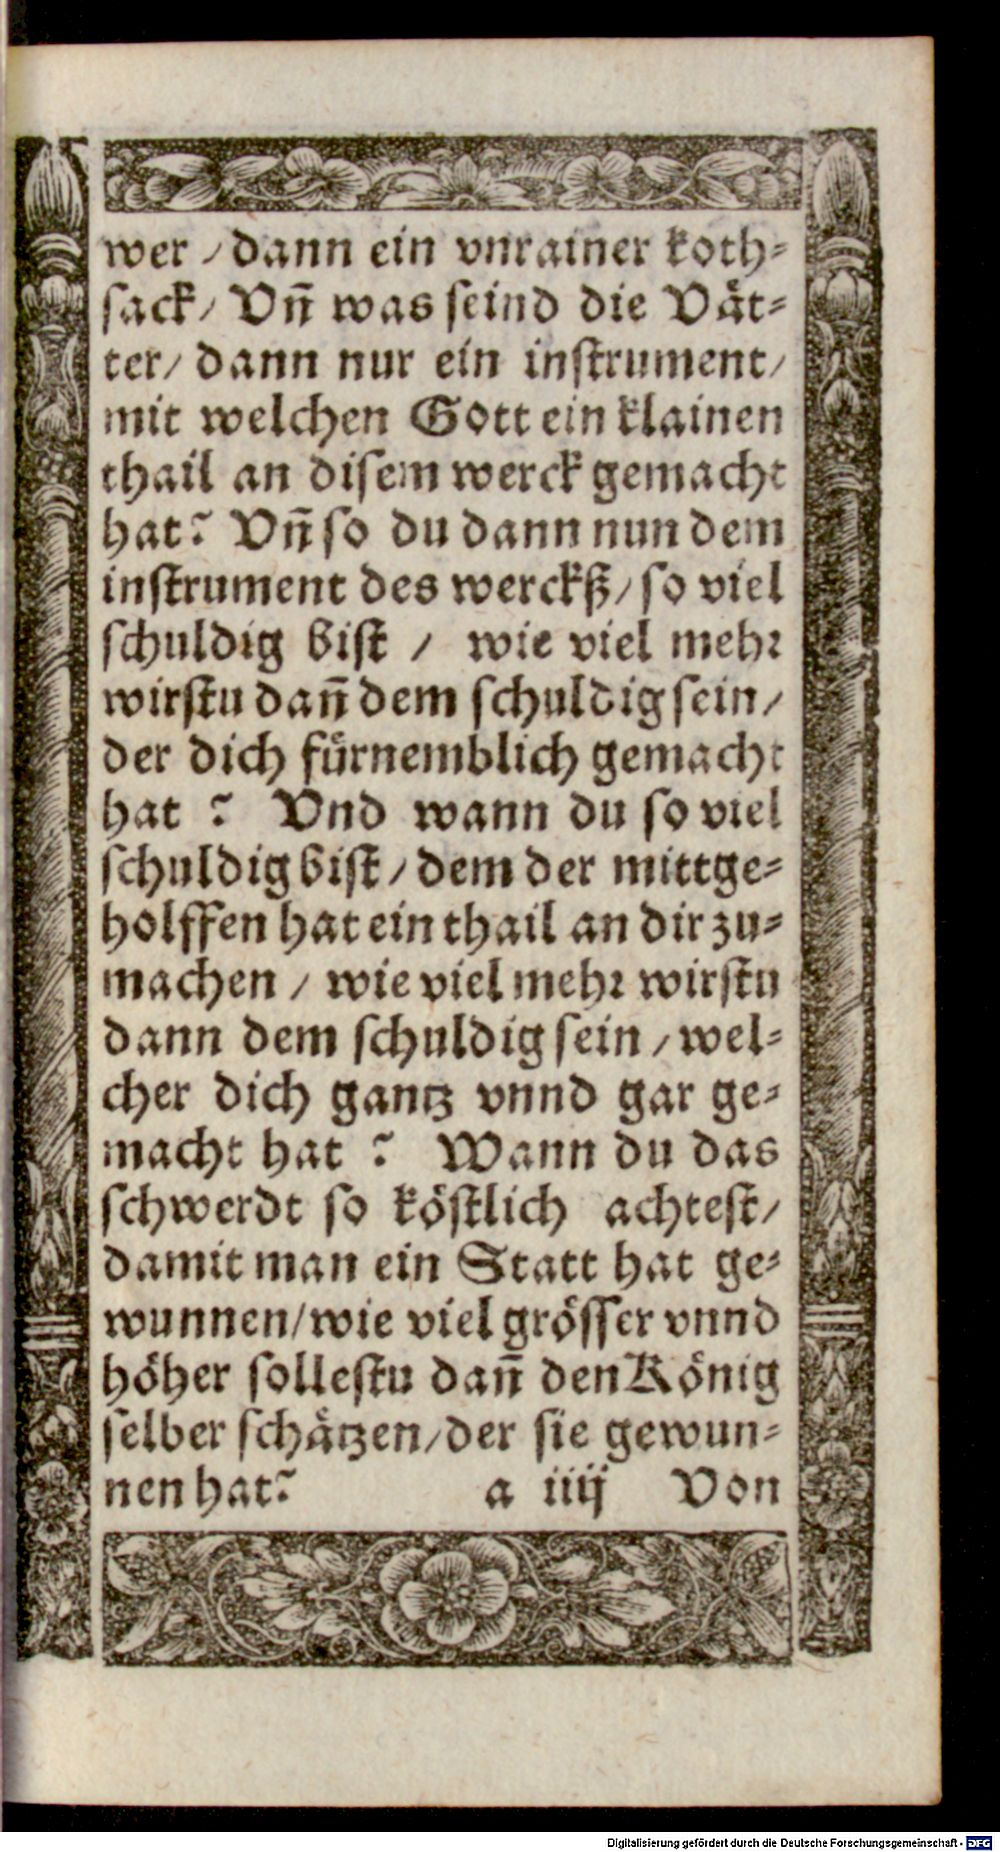 wer / dann ein vnrainer koth⸗
sack / Vñ was seind die Vät⸗
ter / dann nur ein instrument /
mit welchen Gott ein klainen
thail an disem werck gemacht
hat? Vñ so du dann nun dem
instrument des werckß / so viel
schuldig bist / wie viel mehr
wirstu dañ dem schuldig sein /
der dich fürnemblich gemacht
hat ? Vnd wann du so viel
schuldig bist / dem der mittge⸗
holffen hat ein thail an dir zu⸗
machen / wie viel mehr wirstu
dann dem schuldig sein / wel⸗
cher dich gantz vnnd gar ge⸗
macht hat ? Wann du das
schwerdt so köstlich achtest /
damit man ein Statt hat ge⸗
wunnen / wie viel grösser vnnd
höher sollestu dañ den König
selber schätzen / der sie gewun⸗
nen hat? a iiij Von
Digitalisierung gefördert durch die Deutsche Forschungsgemeinschaft - DFG